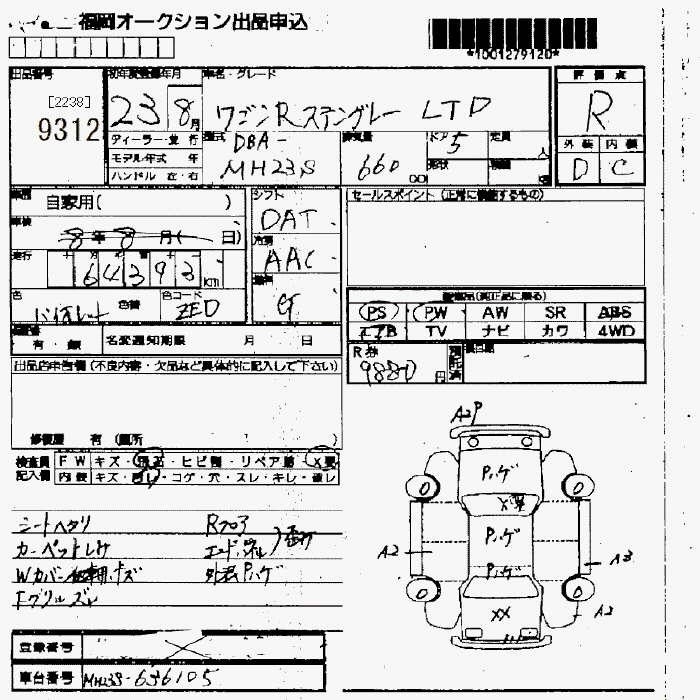 福岡オークション出品申込
*1001279120*
出品番号 初年度登録年月 車名・グレード 評価点
[2238]
9312
23 8月 ワゴンRスティングレー LTD R
ディーラー・並行 型式 DBA- 排気量 ドア 5 定員 外装 内装
モデル年式 年 MH23S 660 形状 D C
ハンドル 左・右
車歴 自家用( ) シフト DAT セールスポイント(正常に機能するもの)
車検 8年8月( 日) 冷房 AAC
走行 64393km 燃料 G
色 色替 色コード ZED
PS PW AW SR ABS
エアB TV ナビ カワ 4WD
有・無 名変通知期限 月 日 R券 9880円
出品店申告欄(不良内容・欠品など具体的に記入して下さい)
修復歴 有(箇所 )
検査員 FW キズ・飛石・ヒビ割・リペア跡・X要
記入欄 内装 キズ・汚レ・コゲ・穴・スレ・キレ・破レ
シートヘタリ Rフロア
カーペットレ
Wカバー キズ 外装Pハゲ
Fグリルズレ
A2P
Pハゲ
Pハゲ
Pハゲ
XX
A2 A3
A2
登録番号
車台番号 MH23S-636105